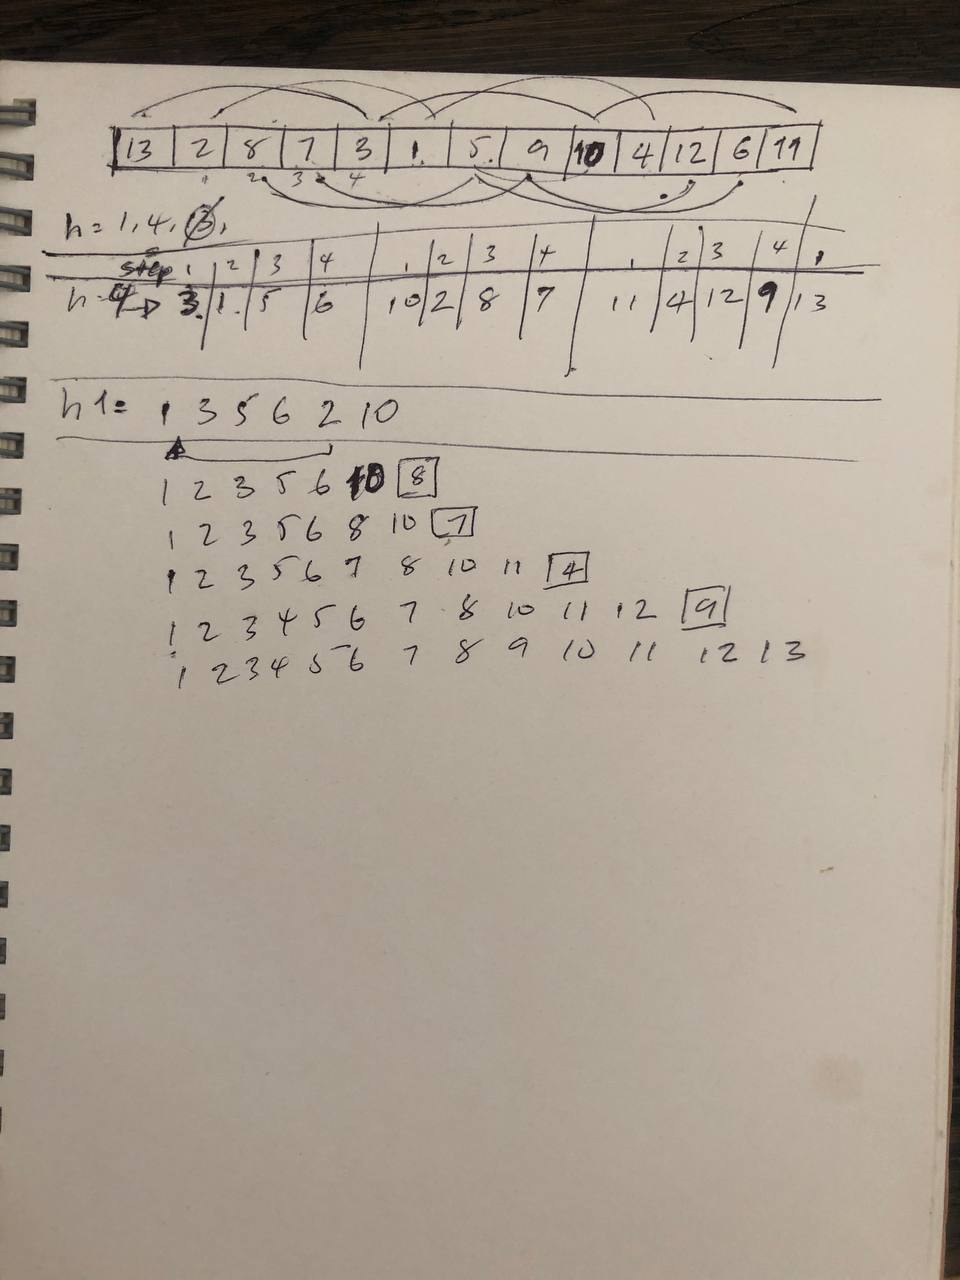 13 2 8 7 3 1 5 9 10 4 12 6 11
2 3 4
h = 1, 4, 13,
step 1 2 3 4 1 2 3 4 1 2 3 4 1
h=4 → 3 1 5 6 10 2 8 7 11 4 12 9 13
h 1 = 1 3 5 6 2 10
1 2 3 5 6 10 8
1 2 3 5 6 8 10 7
1 2 3 5 6 7 8 10 11 4
1 2 3 4 5 6 7 8 10 11 12 9
1 2 3 4 5 6 7 8 9 10 11 12 13